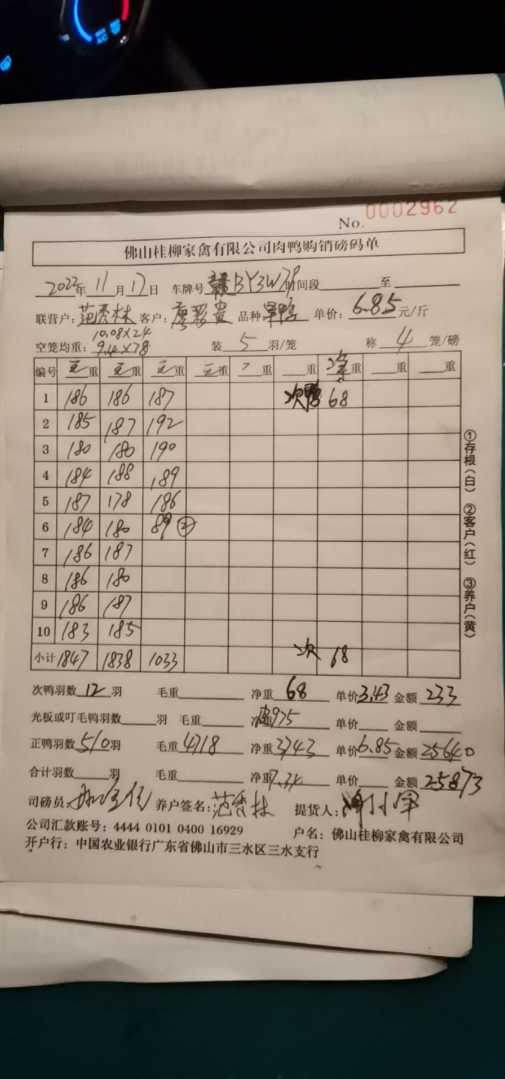 No. 0002962
佛山桂柳家禽有限公司肉鸭购销磅码单
2023年 11月 17日 车牌号 时间段 至
联营户: 范秀林 客户: 品种 单价: 6.85元/斤
10.08×24
空笼均重: 9.4×78 装 5 羽/笼 称 4 笼/磅
编号 重 重 重 重 重 重 重 重 重
1 186 186 187 次鸭 68
2 185 187 192
3 180 180 190
4 184 188 189
5 187 178 186
6 184 180 89 ②
7 186 187
8 186 180
9 186 187
10 183 185
小计 1847 1838 1033 次 68
①存根(白) ②客户(红) ③养户(黄)
次鸭羽数 12 羽 毛重 净重 68 单价 3.43 金额 233
光板或叮毛鸭羽数 羽 毛重 净 975 单价 金额
正鸭羽数 510 羽 毛重 4718 净重 3743 单价 6.85 金额 25640
合计羽数 羽 毛重 净重 7.34 单价 金额 25873
司磅员: 养户签名: 范秀林 提货人:
公司汇款账号: 4444 0101 0400 16929 户名: 佛山桂柳家禽有限公司
开户行: 中国农业银行广东省佛山市三水区三水支行